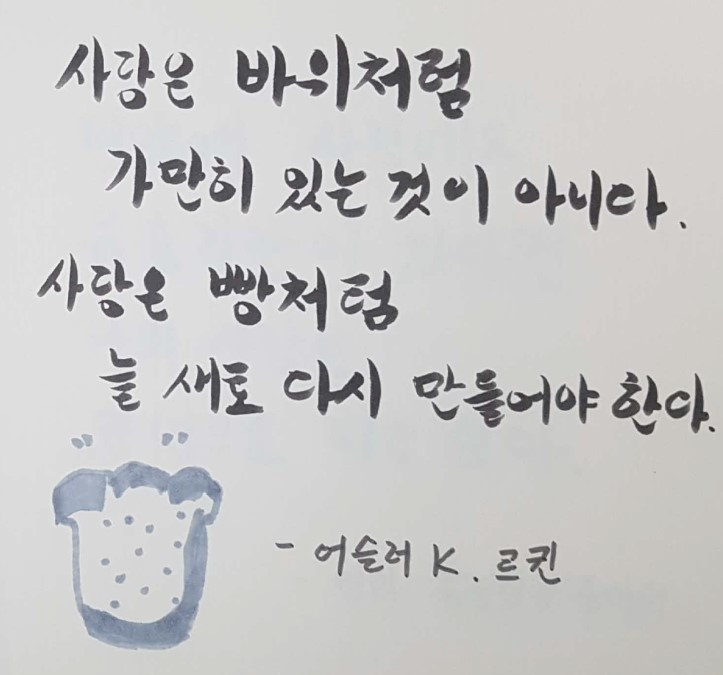 사랑은 바위처럼
가만히 있는 것이 아니다.
사랑은 빵처럼
늘 새로 다시 만들어야 한다.
- 어슐러 K. 르귄